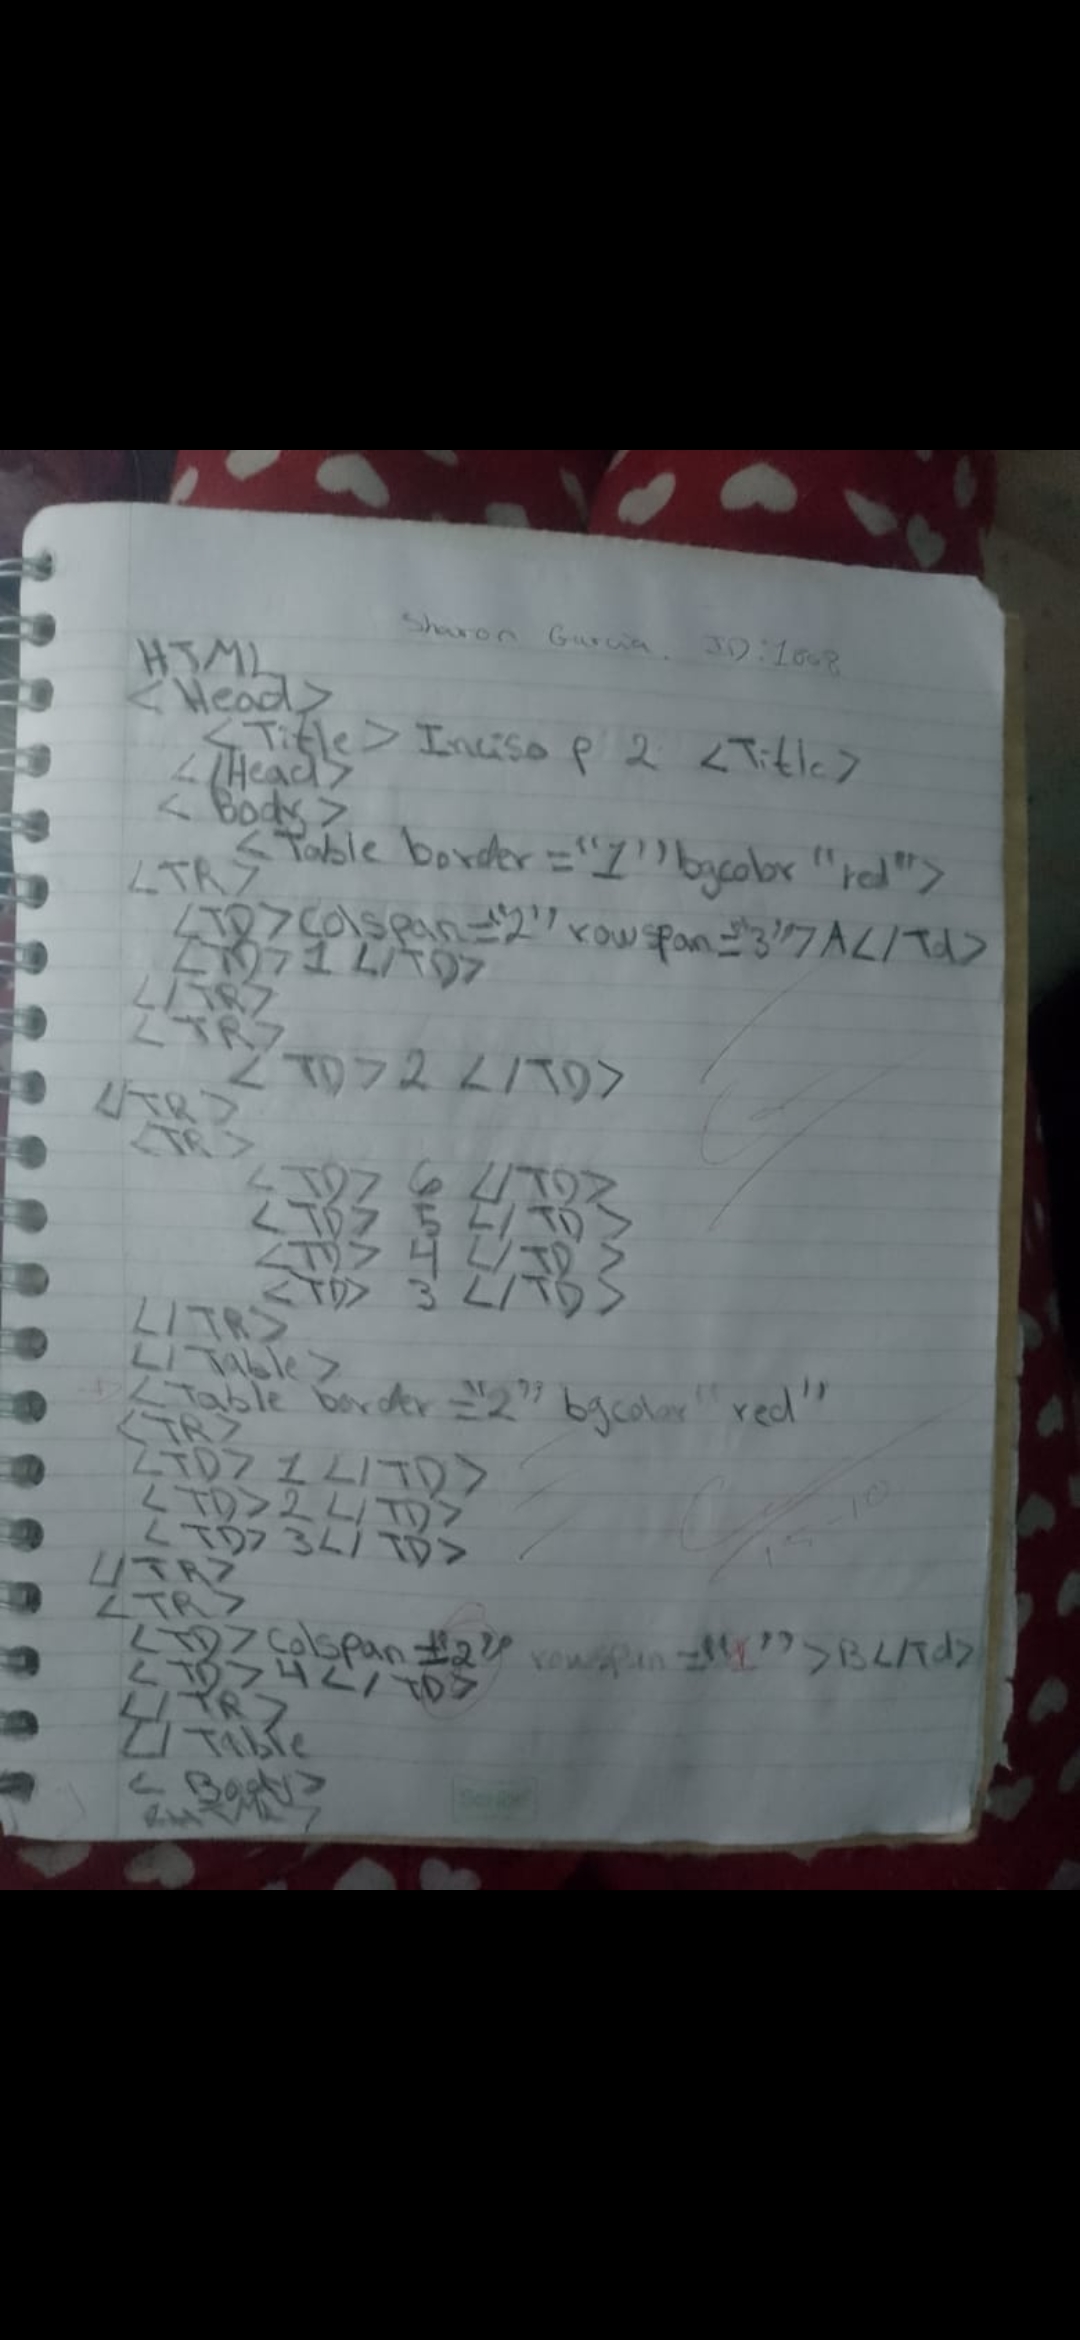 Sharon Garcia. ID:1008
HTML
<Head>
<Title> Inciso p 2 <Title>
</Head>
<Body>
<Table border="1" bgcolor "red">
<TR>
<TD>colspan="2" rowspan="3">A</Td>
<TD>1</TD>
</TR>
<TR>
<TD>2</TD>
</TR>
<TR>
<TD> 6 </TD>
<TD> 5 </TD>
<TD> 4 </TD>
<TD> 3 </TD>
</TR>
</Table>
<Table border="2" bgcolor "red"
<TR>
<TD>1</TD>
<TD>2</TD>
<TD>3</TD>
</TR>
<TR>
<TD>colspan="2" rowspan="1">B</Td>
<TD>4</TD>
</TR>
</Table
<Body>